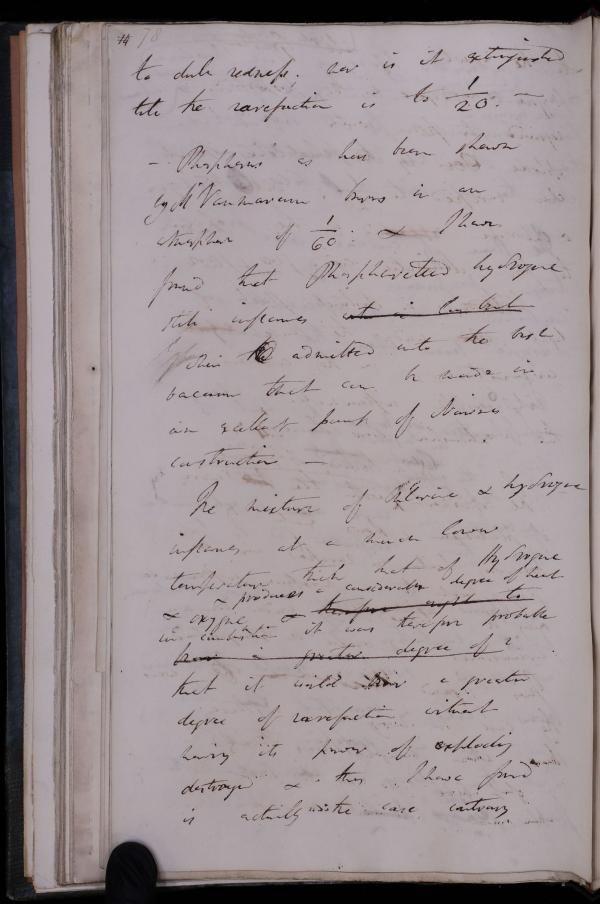 78
to dull redness. nor is it extinguished
till the rarefaction is to 1/20. —
— Phosphorus as has been shewn
by Mr Van marum burns in an
atmosphere of 1/60 : & I have
found that Phosphuretted hydrogene
still inflames
when admitted into the best
vacuum that can be made in
an excellent pump of Nairnes
construction —
The mixture of Chlorine & hydrogene
inflames at a much lower
temperature than that of Hydrogene
& produces a considerable degree of heat
& oxygene & therefore ought to
in combustion it was therefore probable
bear a greater degree of
that it would bear a greater
degree of rarefaction without
having its power of exploding
destroyed & this I have found
is actually the case contrary